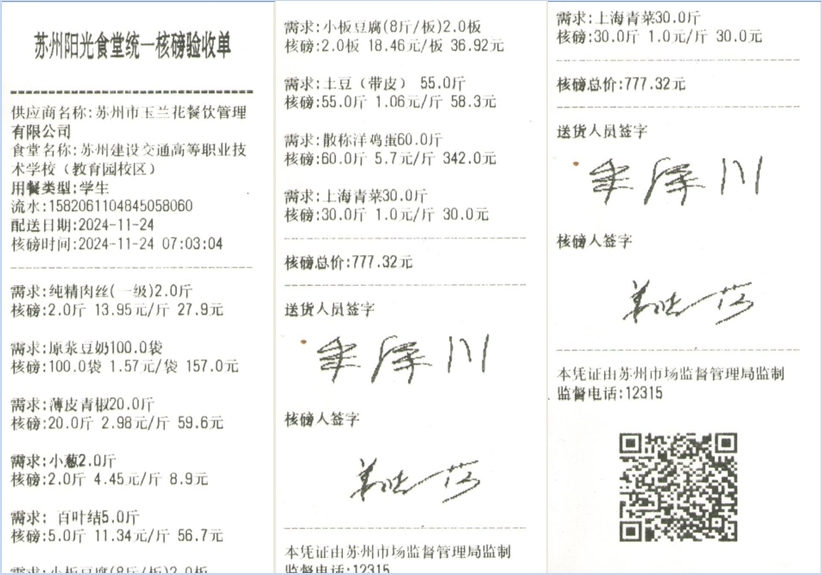 苏州阳光食堂统一核磅验收单
供应商名称:苏州市玉兰花餐饮管理
有限公司
食堂名称:苏州建设交通高等职业技
术学校（教育园校区）
用餐类型:学生
流水:1582061104845058060
配送日期:2024-11-24
核磅时间:2024-11-24 07:03:04
需求:纯精肉丝(一级)2.0斤
核磅:2.0斤 13.95元/斤 27.9元
需求:原浆豆奶100.0袋
核磅:100.0袋 1.57元/袋 157.0元
需求:薄皮青椒20.0斤
核磅:20.0斤 2.98元/斤 59.6元
需求:小葱2.0斤
核磅:2.0斤 4.45元/斤 8.9元
需求: 百叶结5.0斤
核磅:5.0斤 11.34元/斤 56.7元
需求:小板豆腐(8斤/板)2.0板
需求:小板豆腐(8斤/板)2.0板
核磅:2.0板 18.46元/板 36.92元
需求:土豆（带皮） 55.0斤
核磅:55.0斤 1.06元/斤 58.3元
需求:散称洋鸡蛋60.0斤
核磅:60.0斤 5.7元/斤 342.0元
需求:上海青菜30.0斤
核磅:30.0斤 1.0元/斤 30.0元
核磅总价:777.32元
送货人员签字
核磅人签字
本凭证由苏州市场监督管理局监制
监督电话:12315
需求:上海青菜30.0斤
核磅:30.0斤 1.0元/斤 30.0元
核磅总价:777.32元
送货人员签字
核磅人签字
本凭证由苏州市场监督管理局监制
监督电话:12315